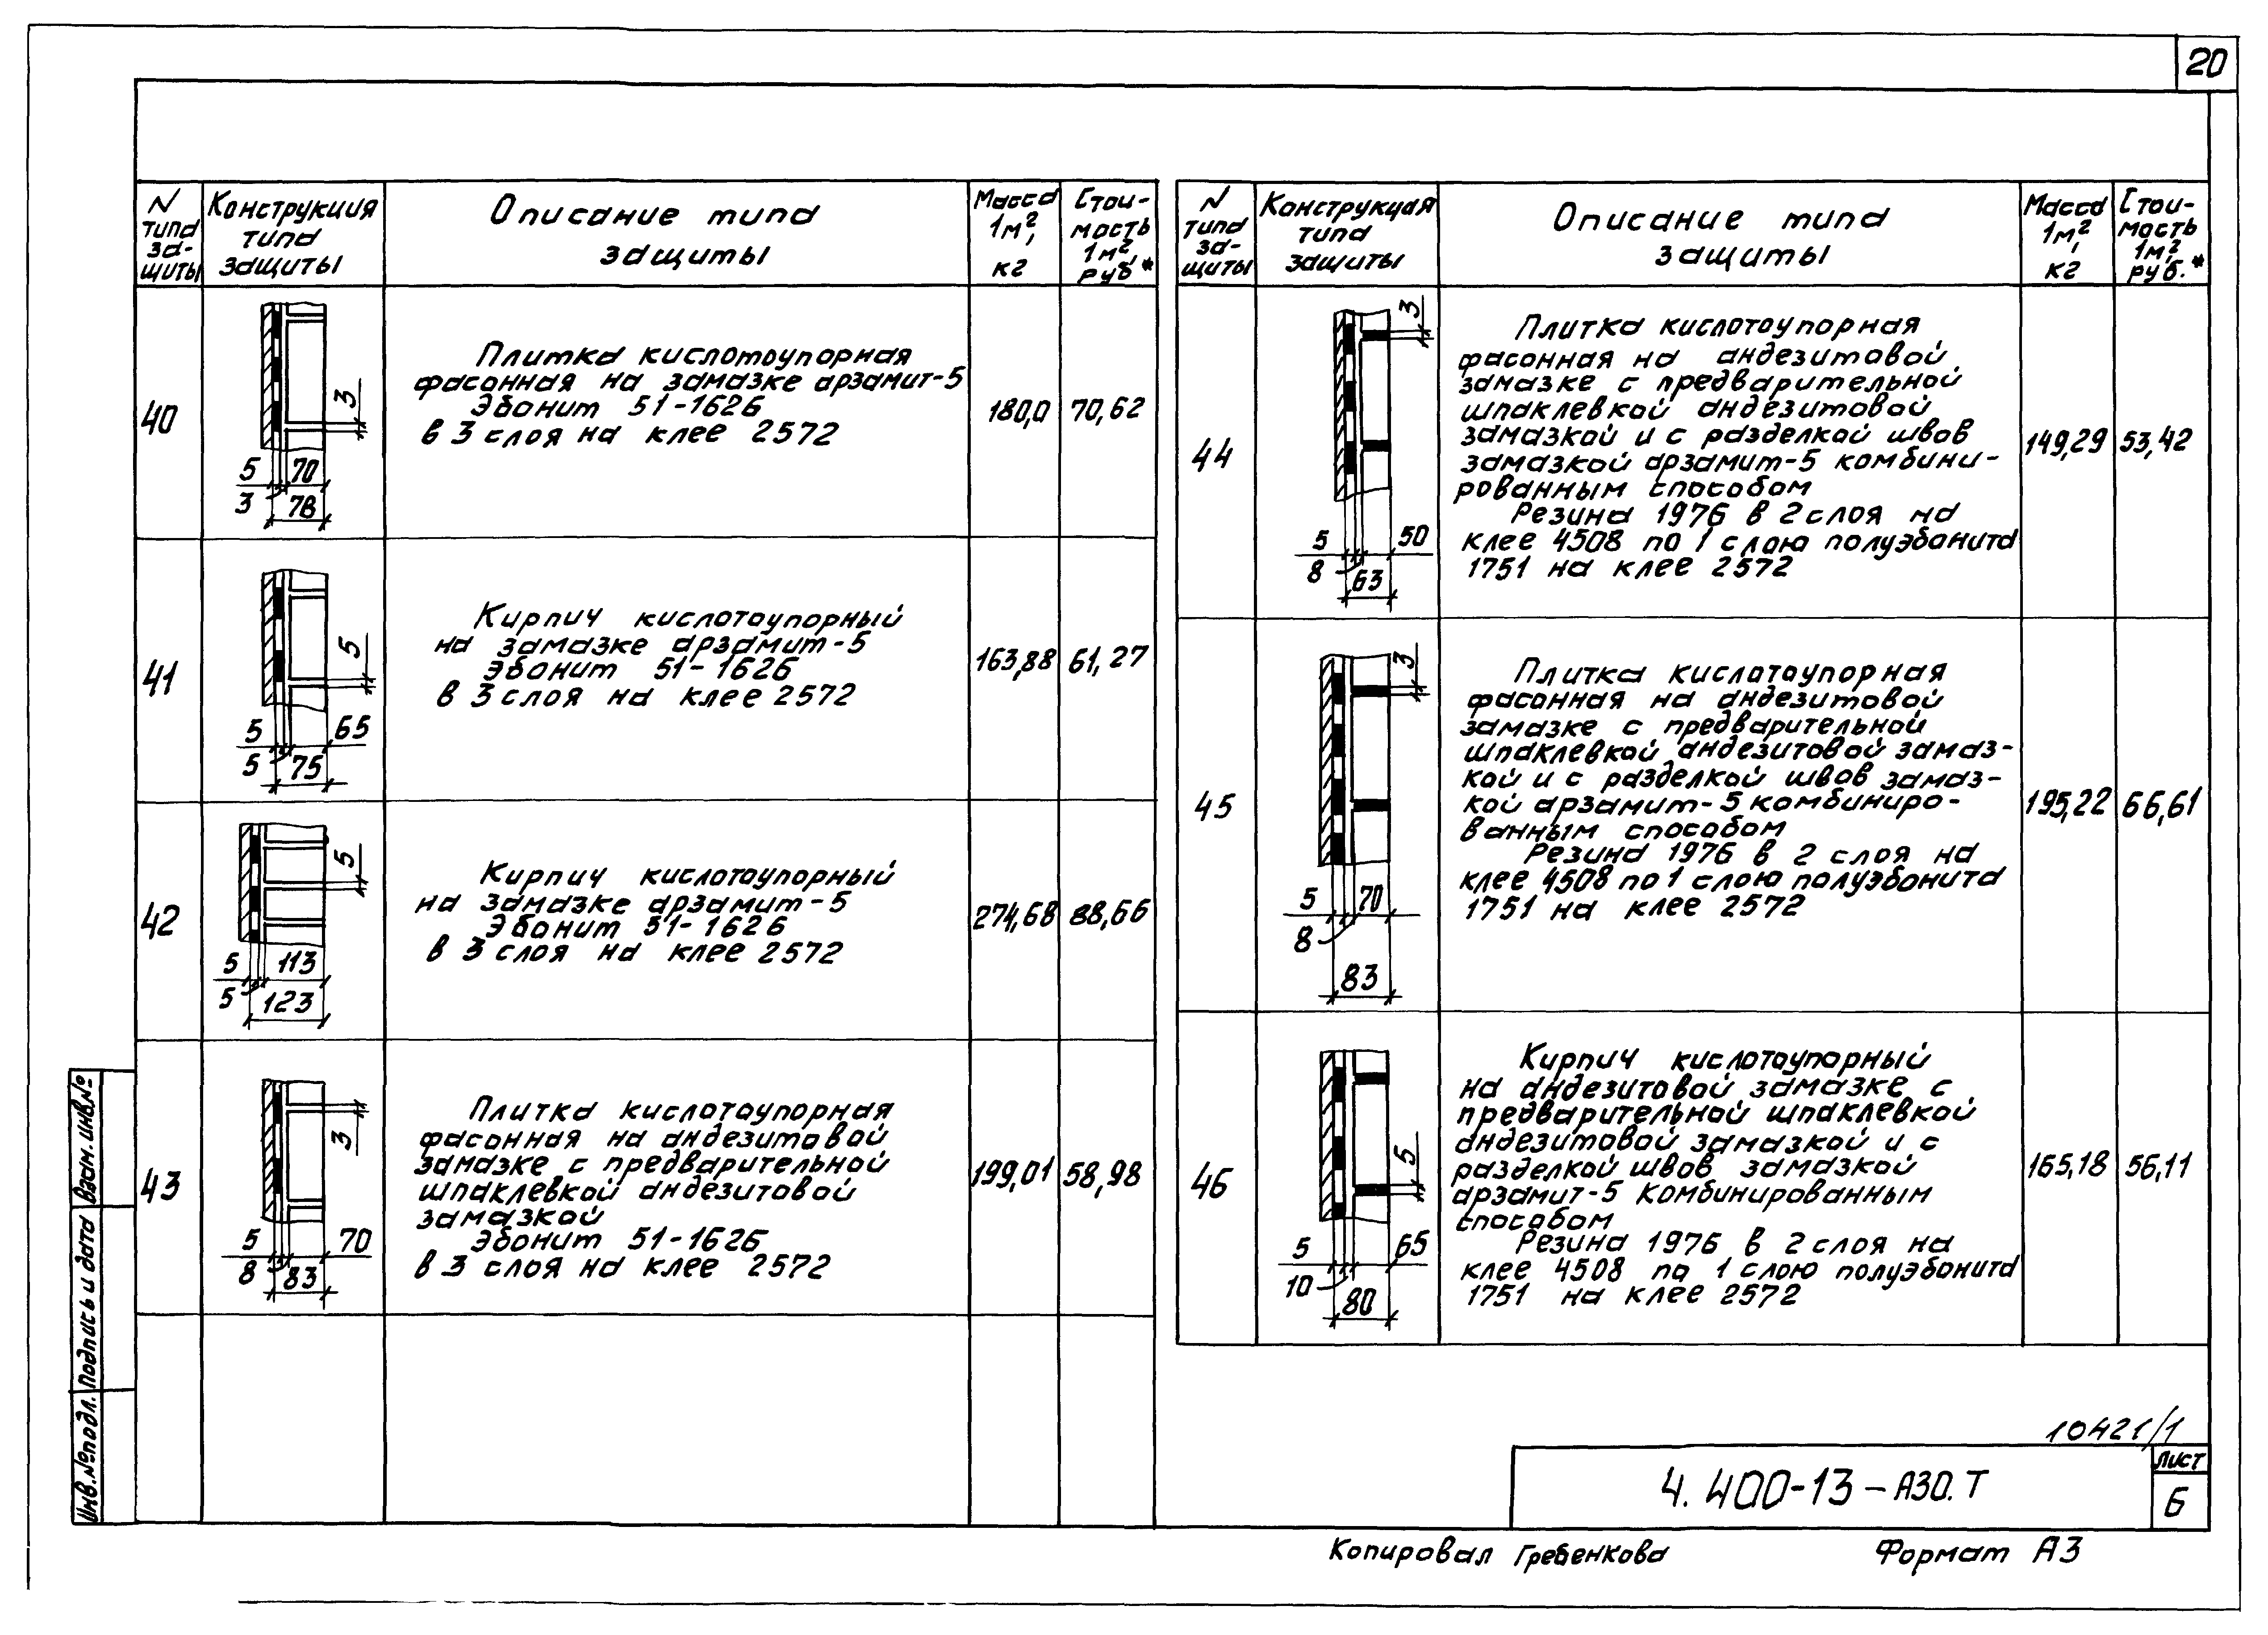 20
N
типа
за-
щиты
Конструкция
типа
защиты
Описание типа
защиты
Масса
1м²,
кг
Стои-
мость
1м²,
руб*
40
3
5 70
3 78
Плитка кислотоупорная
фасонная на замазке арзамит-5
Эбонит 51-1626
в 3 слоя на клее 2572
180,0
70,62
41
5
5 65
5 75
Кирпич кислотоупорный
на замазке арзамит-5
Эбонит 51-1626
в 3 слоя на клее 2572
163,88
61,27
42
5
5 113
5 123
Кирпич кислотоупорный
на замазке арзамит-5
Эбонит 51-1626
в 3 слоя на клее 2572
274,68
88,66
43
3
5 70
8 83
Плитка кислотоупорная
фасонная на андезитовой
замазке с предварительной
шпаклевкой андезитовой
замазкой
Эбонит 51-1626
в 3 слоя на клее 2572
199,01
58,98
N
типа
за-
щиты
Конструкция
типа
защиты
Описание типа
защиты
Масса
1м²,
кг
Стои-
мость
1м²,
руб.*
44
3
5 50
8 63
Плитка кислотоупорная
фасонная на андезитовой
замазке с предварительной
шпаклевкой андезитовой
замазкой и с разделкой швов
замазкой арзамит-5 комбини-
рованным способом
Резина 1976 в 2 слоя на
клее 4508 по 1 слою полуэбонита
1751 на клее 2572
149,29
53,42
45
3
5 70
8
83
Плитка кислотоупорная
фасонная на андезитовой
замазке с предварительной
шпаклевкой андезитовой замаз-
кой и с разделкой швов замаз-
кой арзамит-5 комбиниро-
ванным способом
Резина 1976 в 2 слоя на
клее 4508 по 1 слою полуэбонита
1751 на клее 2572
195,22
66,61
46
5
5 65
10 80
Кирпич кислотоупорный
на андезитовой замазке с
предварительной шпаклевкой
андезитовой замазкой и с
разделкой швов замазкой
арзамит-5 комбинированным
способом
Резина 1976 в 2 слоя на
клее 4508 по 1 слою полуэбонита
1751 на клее 2572
165,18
56,11
Взам. инв.№
Подпись и дата
Инв.№подл.
10421/1
4.400-13-АЗО.Т
Лист
6
Копировал Гребенкова Формат А3